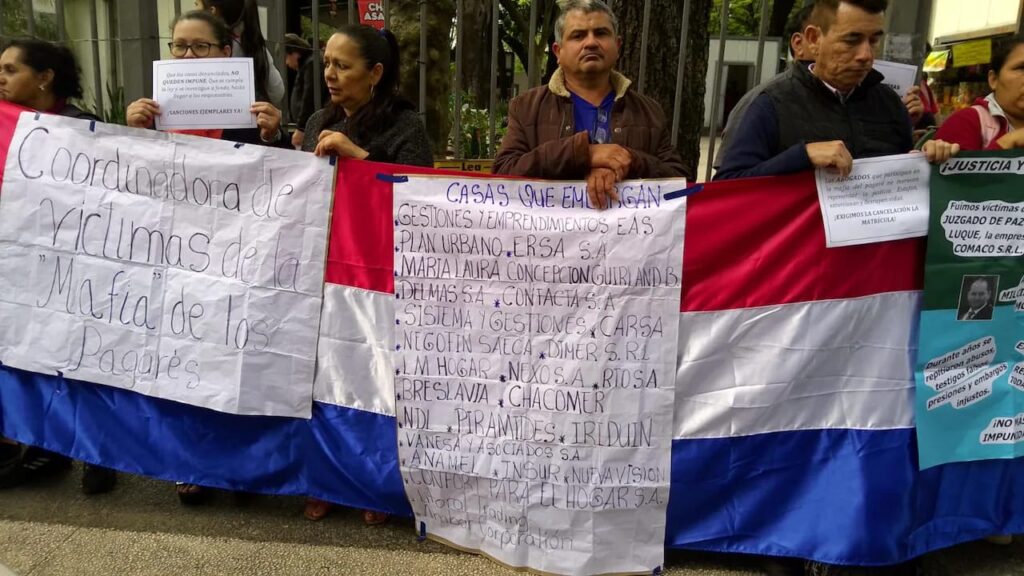 CH
ASA
Que los casos denunciados, NO
QUEDEN IMPUNE. Que se cumpla
la ley y se investigue a fondo, hasta
llegar a los responsables.
¡SANCIONES EJEMPLARES YA!
Coordinadora de
Víctimas de la
"Mafia" de los
Pagarés
CASAS QUE EMBARGAN
GESTIONES Y EMPRENDIMIENTOS EAS
PLAN URBANO. ERSA S.A
MARIA LAURA CONCEPCION GUIRLAND B.
DELMAS S.A * CONTACTA S.A
SISTEMA Y GESTIONES * CARSA
NEGOFIN SAECA * DIMER S.R.L
LM HOGAR * NEXO S.A * RIOSA
BRESLAVIA * CHACOMER
NDI * PIRAMIDES * IRLDUIN
VANESA Y ASOCIADOS S.A
ANAMEL * INSUR * NUEVA VISION
CONFORT PARA EL HOGAR S.A
Trading
Corporation
Los ABOGADOS que participan en
la mafia del pagaré no merecen
representar la justicia.
¡EXIGIMOS LA CANCELACIÓN
MATRÍCULA!
¡JUSTICIA Y
Fuimos víctimas d
JUZGADO DE PAZ
LUQUE, la empres
COMACO S.R.L
Durante años se
repitieron abusos,
testigos falsos,
presiones y embargos
injustos.
¡NO MÁS
IMPUNID